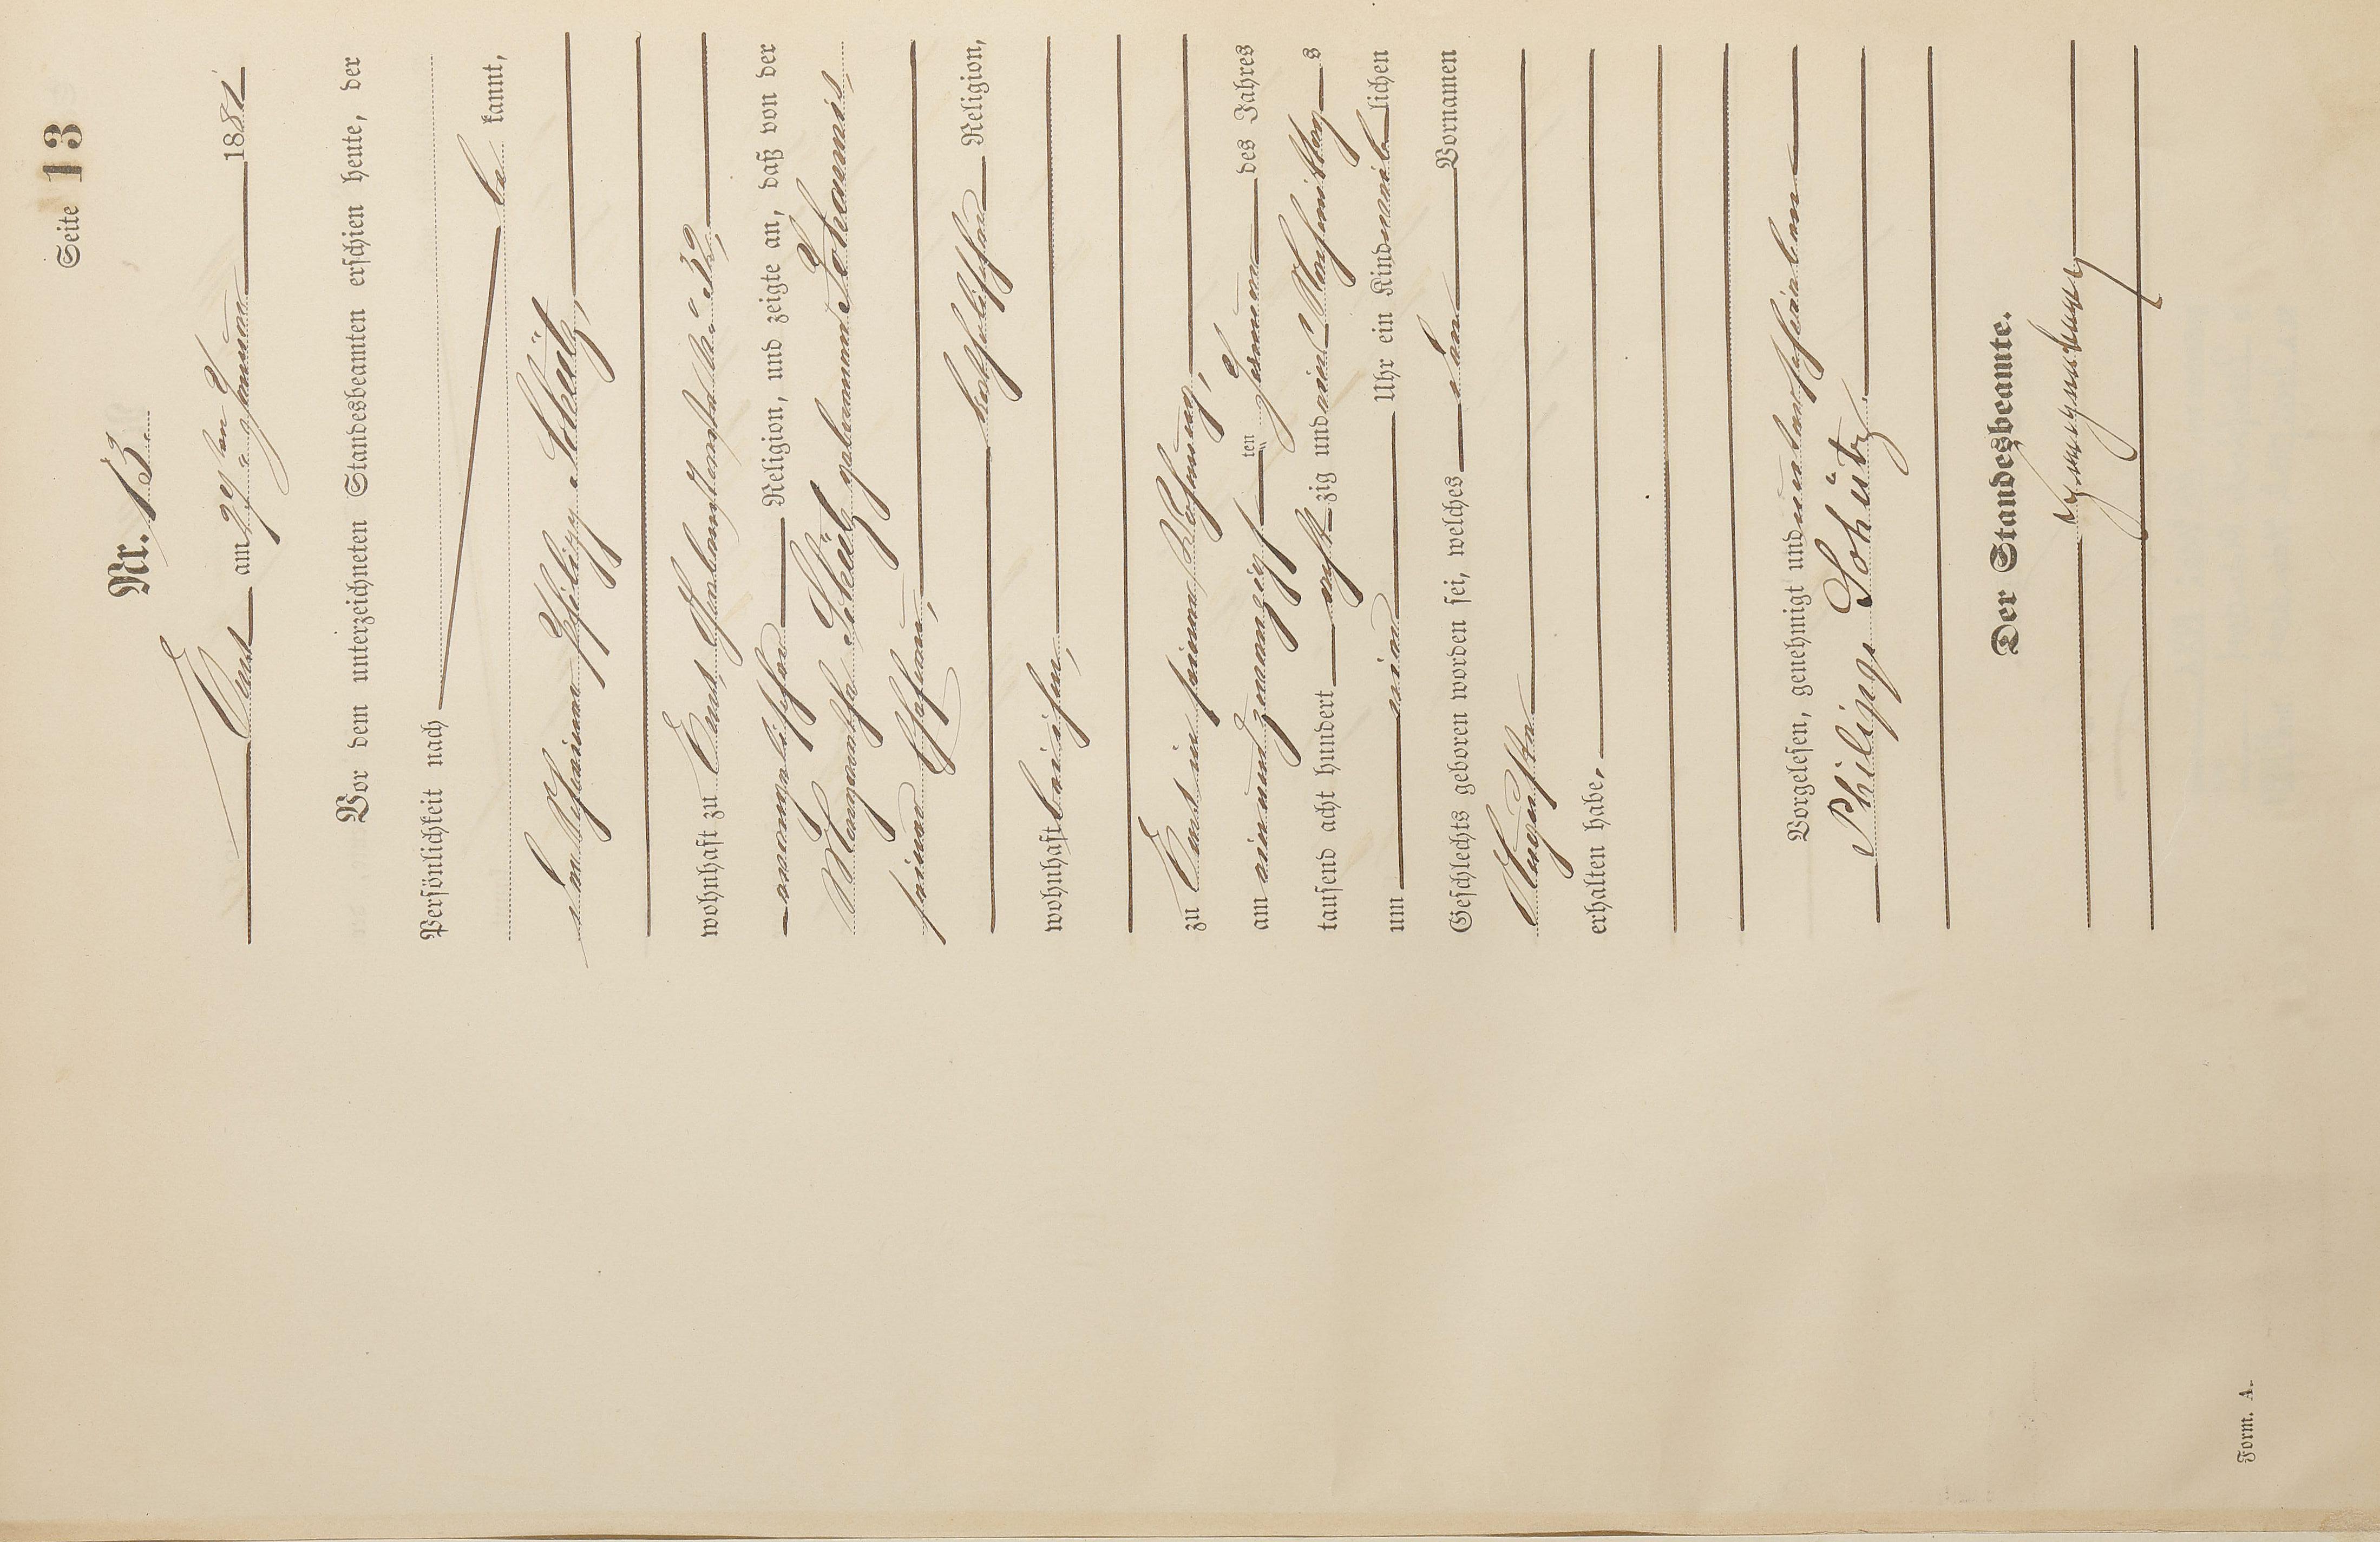 Seite 13
Nr. 13.
Ems am Januar 1881
Vor dem unterzeichneten Standesbeamten erschien heute, der
Persönlichkeit nach
be kannt,
der Schreiner Philipp Schütz,
wohnhaft zu Ems, 32,
evangelischer Religion, und zeigte an, daß von der
Margaretha Schütz geborenen Johannis,
seiner Ehefrau,
katholischer Religion,
wohnhaft bei ihm,
zu Ems in seiner Wohnung,
am ein und zwanzigst ten Januar des Jahres
tausend acht hundert acht zig und ein Nachmittag s
um Uhr ein Kind weib lichen
Geschlechts geboren worden sei, welches den Vornamen
Auguste
erhalten habe.
Vorgelesen, genehmigt und unterschrieben
Philipp Schütz
Der Standesbeamte.
Form. A.